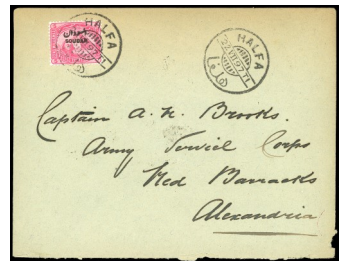 HALFA
SOUDAN
HALFA
Captain A. N. Brooks.
Army Service Corps
Red Barracks
Alexandria